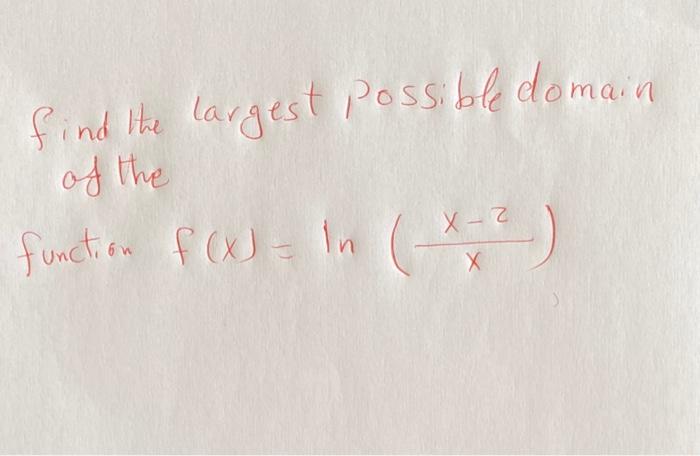 find the largest possible domain
of the
function f(x) = ln ( x-2 / x )